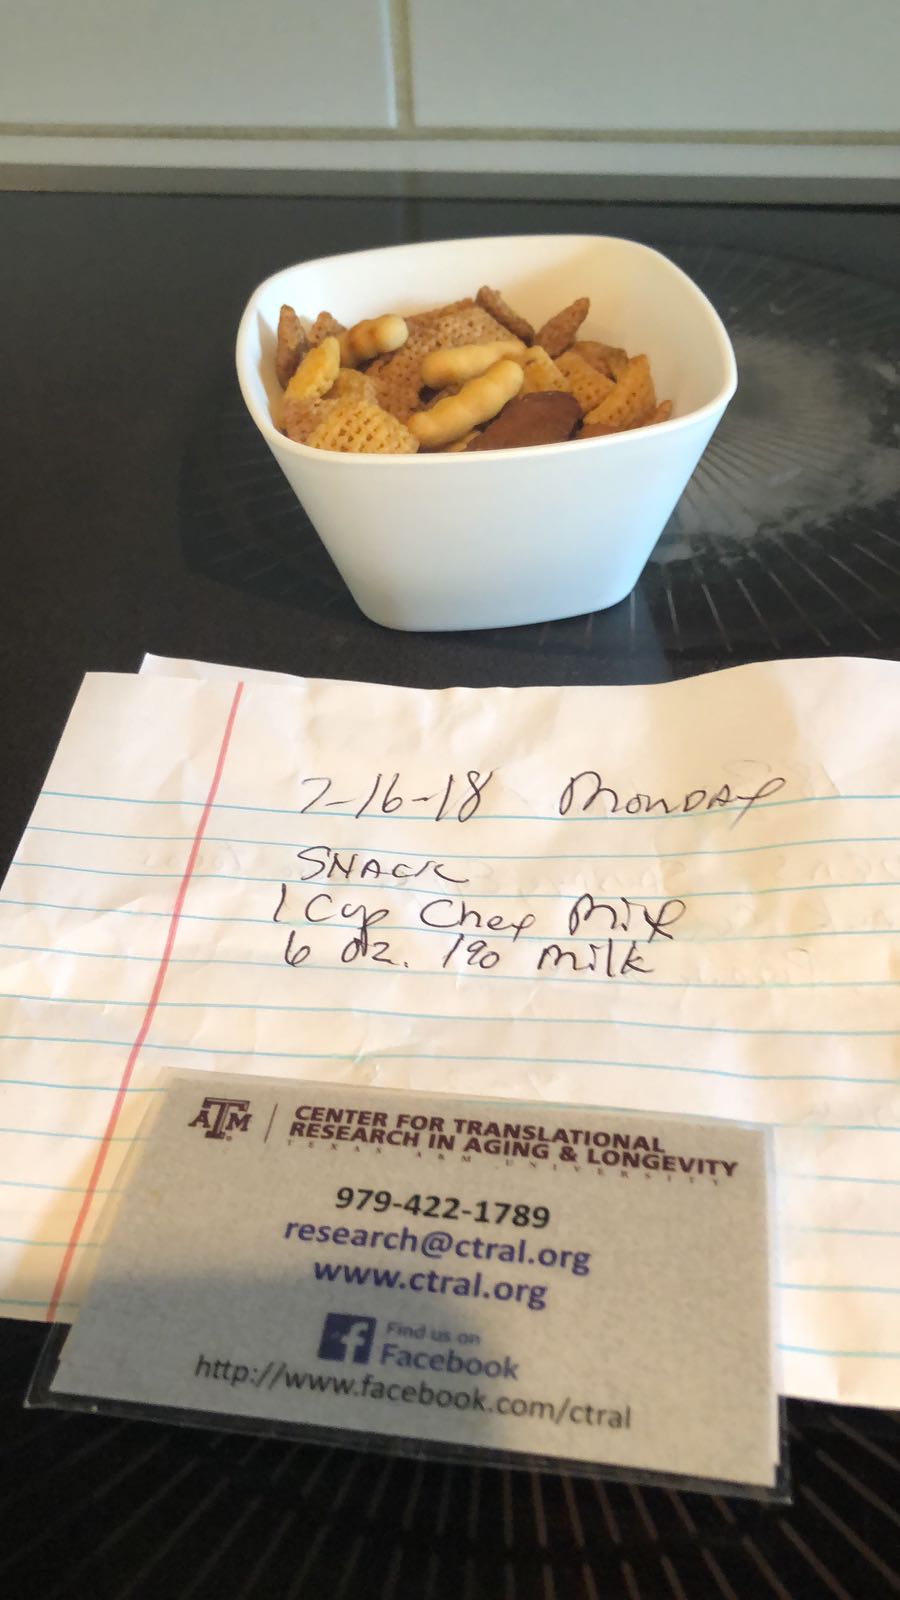 7-16-18 Monday
Snack
1 Cup Chex Mix
6 oz. 1% milk
ATM
CENTER FOR TRANSLATIONAL
RESEARCH IN AGING & LONGEVITY
TEXAS A&M UNIVERSITY
979-422-1789
research@ctral.org
www.ctral.org
f Find us on
Facebook
http://www.facebook.com/ctral